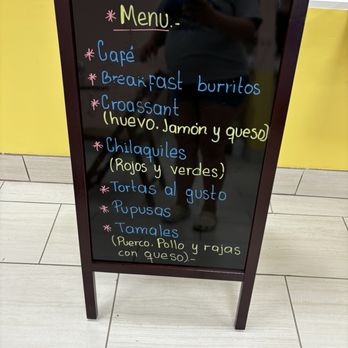 * Menu.-
* Café
* Breakfast burritos
* Croassant
(huevo. Jamón y queso)
* Chilaquiles
(Rojos y verdes)
* Tortas al gusto
* Pupusas
* Tamales
(Puerco. Pollo y rajas
con queso)-